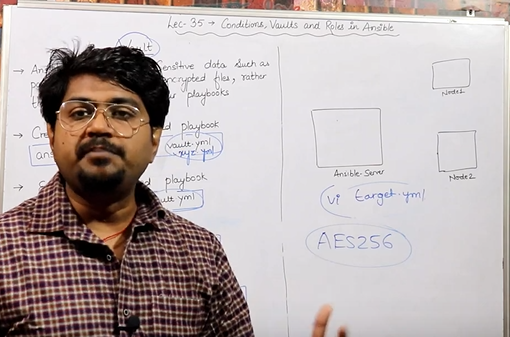 Lec-35 → Conditions, Vaults and Roles in Ansible
Vault
→ An sensitive data such as
encrypted files, rather
playbooks
→ Cre d playbook
ans vault.yml
xyz.yml
→ d playbook
ult.yml
Node1
Ansible-Server
Node2
vi target.yml
AES256